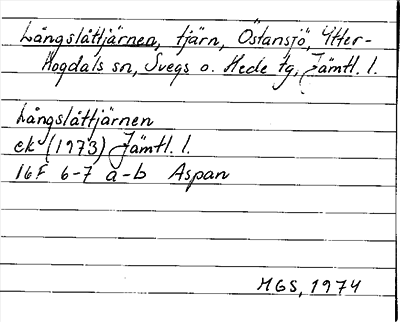 Långslåttjärnen, tjärn, Östansjö, Ytter-
Hogdals sn, Svegs o. Hede tg, Jämtl. l.
Långslåttjärnen
ek (1973) Jämtl. l.
16F 6-7 a-b Aspan
MGS, 1974